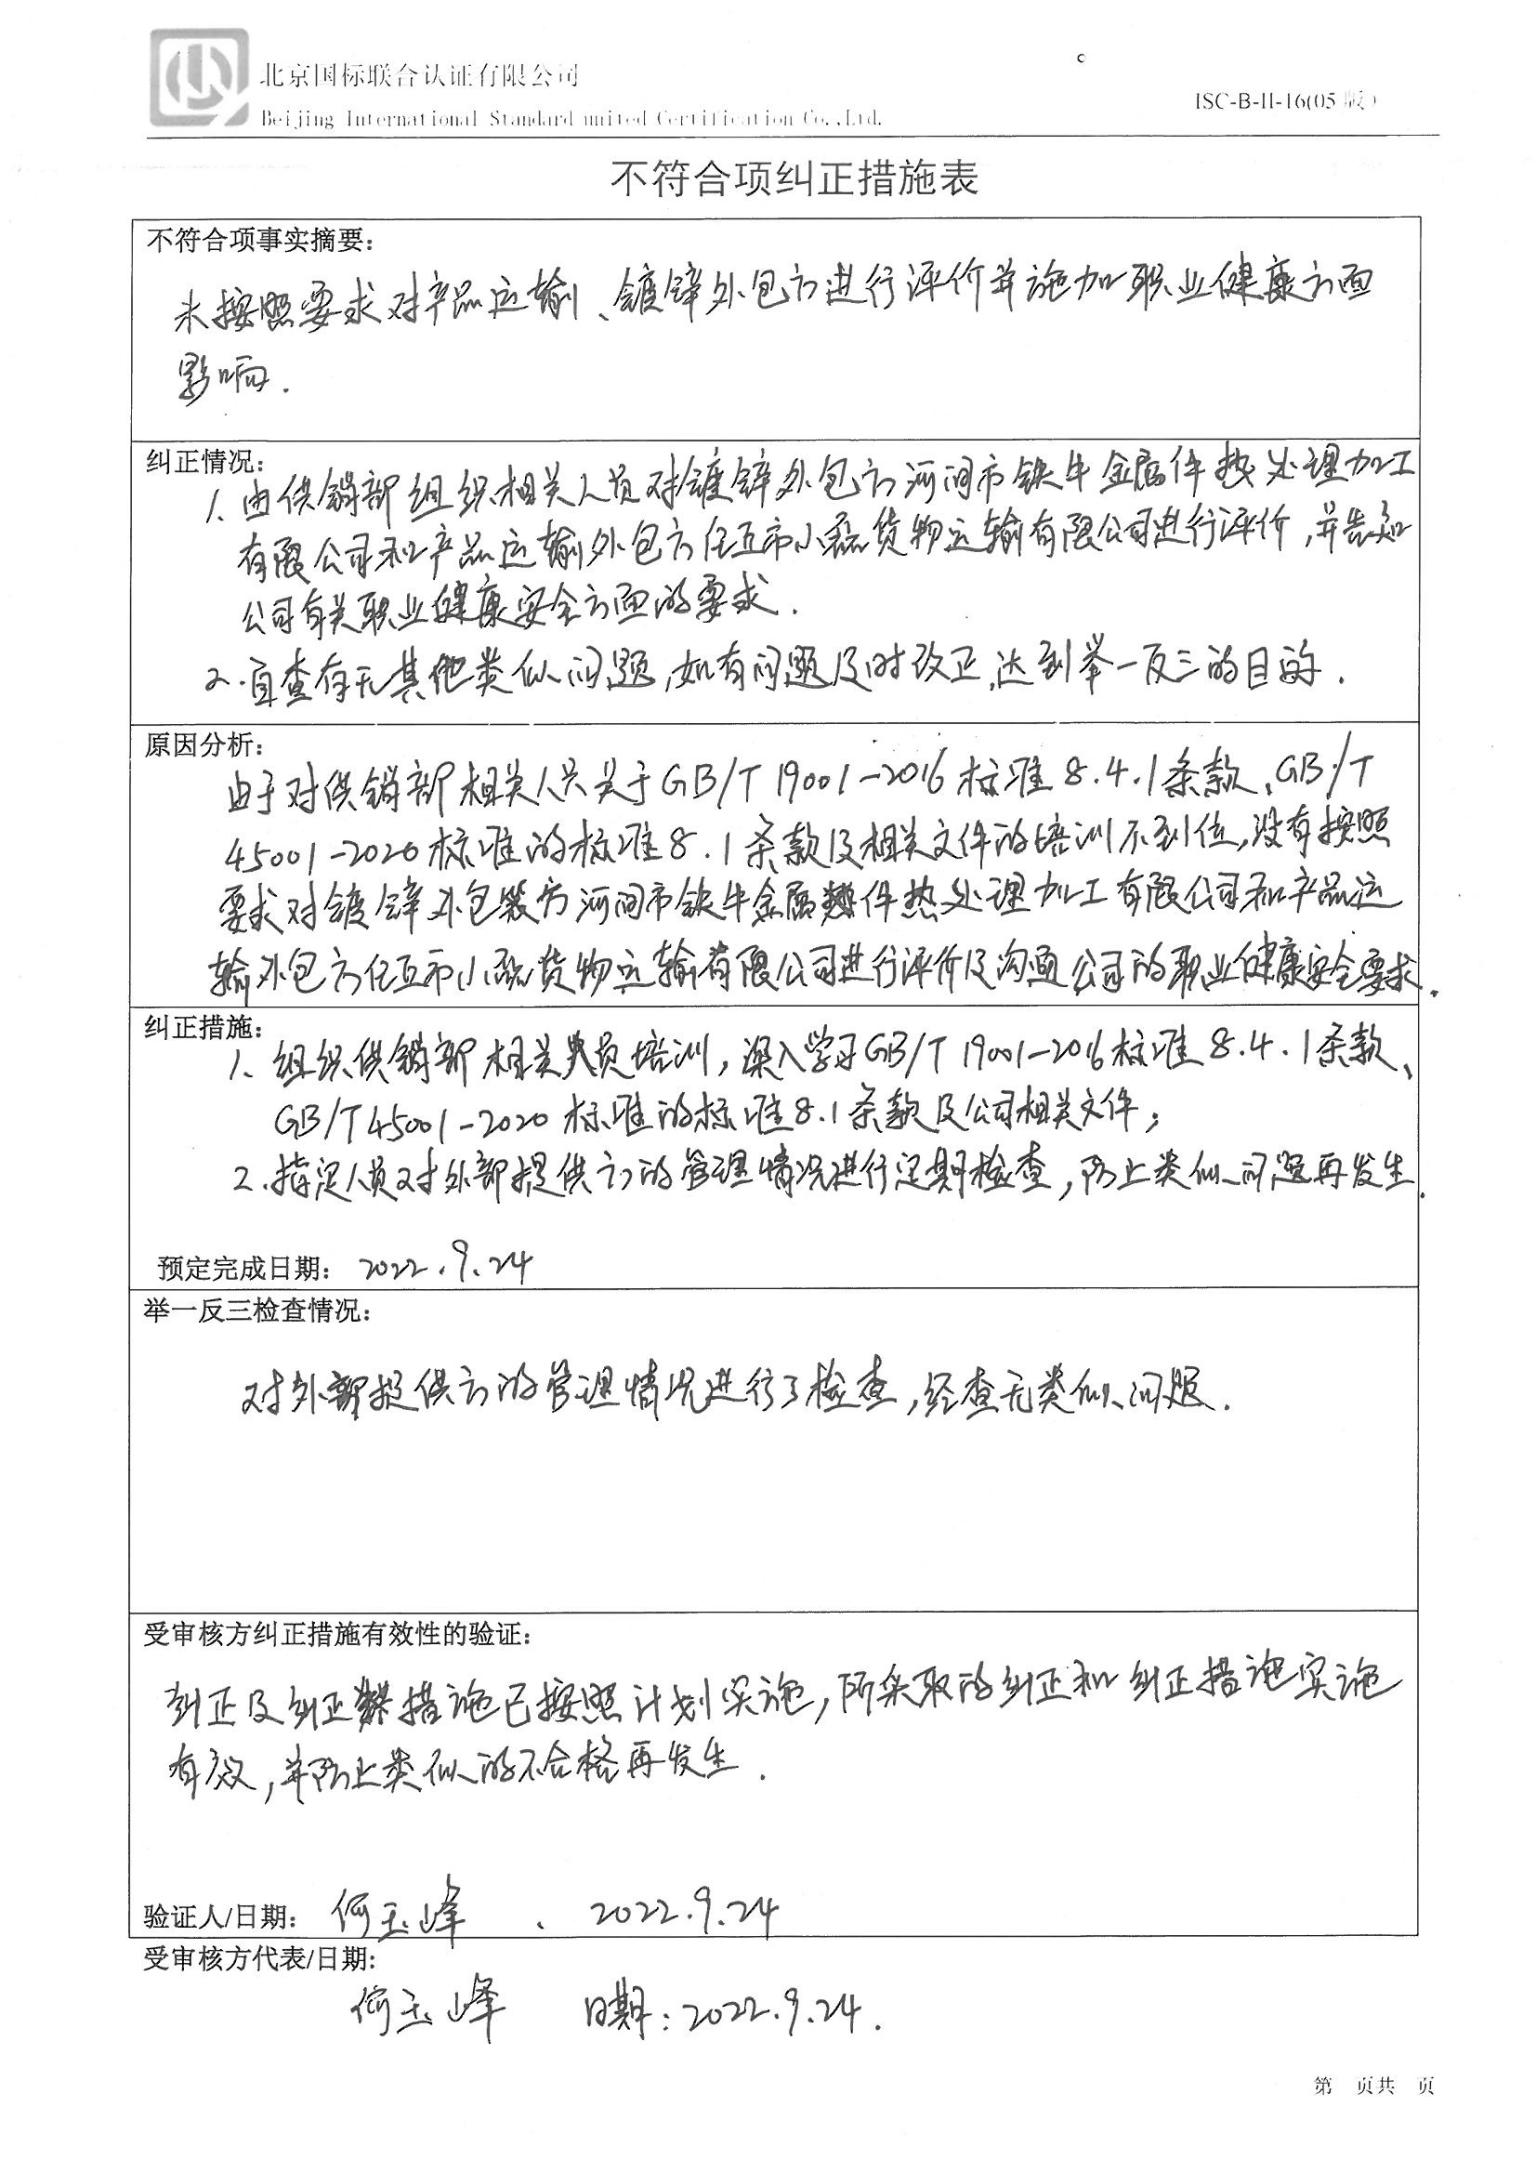 北京国标联合认证有限公司
Beijing International Standard united Certification Co.,Ltd.
ISC-B-II-16(05版)
不符合项纠正措施表
不符合项事实摘要:
未按照要求对产品运输、镀锌外包方进行评价并施加职业健康方面
影响.
纠正情况:
1、由供销部组织相关人员对镀锌外包方河间市铁牛金属件热处理加工
有限公司和产品运输外包方任丘市小磊货物运输有限公司进行评价,并告知
公司有关职业健康安全方面的要求.
2.自查有无其他类似问题,如有问题及时改正,达到举一反三的目的.
原因分析:
由于对供销部相关人员关于GB/T 19001-2016标准8.4.1条款、GB/T
45001-2020标准的标准8.1条款及相关文件的培训不到位,没有按照
要求对镀锌外包装方河间市铁牛金属件热处理加工有限公司和产品运
输外包方任丘市小磊货物运输有限公司进行评价及沟通公司的职业健康安全要求.
纠正措施:
1、组织供销部相关人员培训,深入学习GB/T 19001-2016标准8.4.1条款、
GB/T45001-2020标准的标准8.1条款及公司相关文件;
2.指定人员对外部提供方的管理情况进行定期检查,防止类似问题再发生.
预定完成日期: 2022.9.24
举一反三检查情况:
对外部提供方的管理情况进行了检查,经查无类似问题.
受审核方纠正措施有效性的验证:
纠正及纠正措施已按照计划实施,所采取的纠正和纠正措施实施
有效,并防止类似的不合格再发生.
验证人/日期: 何玉峰 、 2022.9.24
受审核方代表/日期:
何玉峰 日期:2022.9.24.
第 页共 页